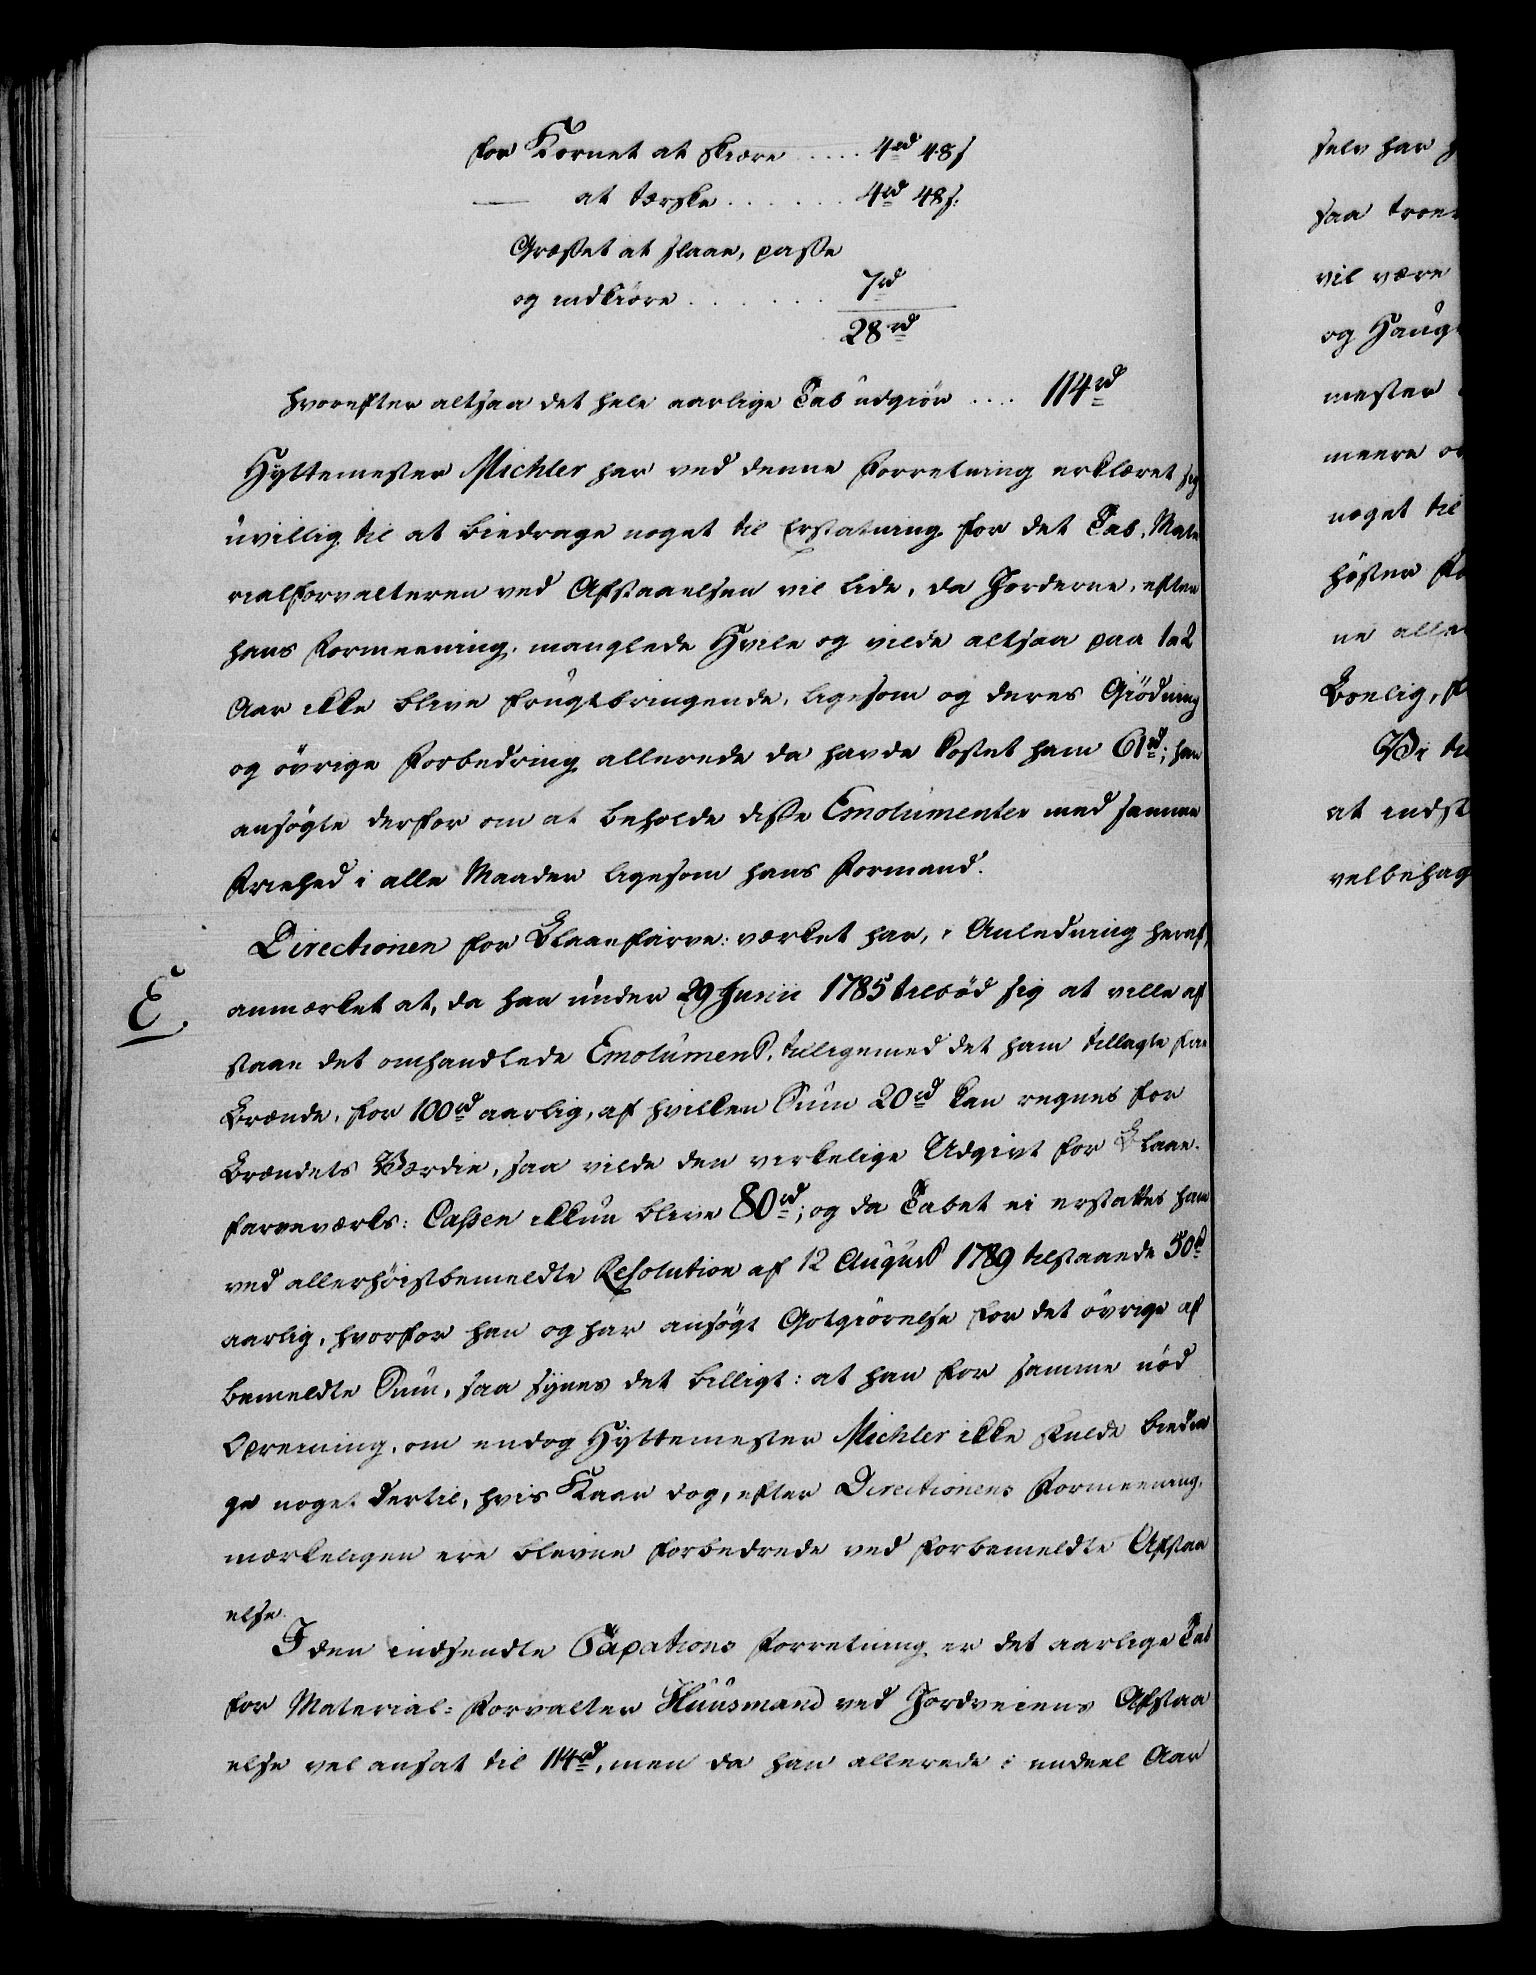 for Kornet at skiære ..... 4rd 48s
— at tærske ...... 4rd 48s:
Græsset at slaae, passe
og indkiøre ....... 7rd
28rd
hvorefter altsaa det hele aarlige Tab udgiør .... 114rd
Hyttemester Michler har ved denne Forretning erklæret sig
uvillig til at biedrage noget til Erstatning for det Tab, Mate
rialforvalteren ved Afstaaelsen vil lide, da Jorderne, efter
hans Formeening, manglede Hvile og vilde altsaa paa 1 a 2
Aar ikke blive frugtbringende, ligesom og deres Giødning
og øvrige Forbedring allerede da havde kostet ham 61rd; han
ansøgte derfor om at beholde disse Emolumenter med samme
Friehed i alle Maader ligesom hans Formand.
Directionen for Blaaefarve-værket har, i Anledning heraf,
E.
anmærket at, da han under 29 Junii 1785 tilbød sig at ville af
staae det omhandlede Emolument, tilligemed det ham tillagte frie
Brænde, for 100rd aarlig, af hvilken Sum 20rd kan regnes for
Brændets Værdie, saa vilde den verkelige Udgivt for Blaae-
farveværks-Cassen ikkun blive 80rd; og da Tabet ei erstattes ham
ved allerhøistbemeldte Resolution af 12 August 1789 tilstaaede 50rd
aarlig, hvorfor han og har ansøgt Gotgiørelse for det øvrige af
bemeldte Sum, saa synes det billigt: at han for samme nød
Opreisning, om endog Hyttemester Michler ikke skulde biedra
ge noget dertil, hvis Kaar dog, efter Directionens Formeening,
mærkeligen ere blevne forbedrede ved forbemeldte Afstaa
else.
I den indsendte Taxations Forretning er det aarlige Tab
for Material-Forvalter Huusmand ved Jordveiens Afstaa
else vel ansat til 114rd, men da han allerede i endeel Aar
selv har
saa
vil være
og
mester
meere
noget til
høster
ne
Boelig,
Vi
at indst
velbehag